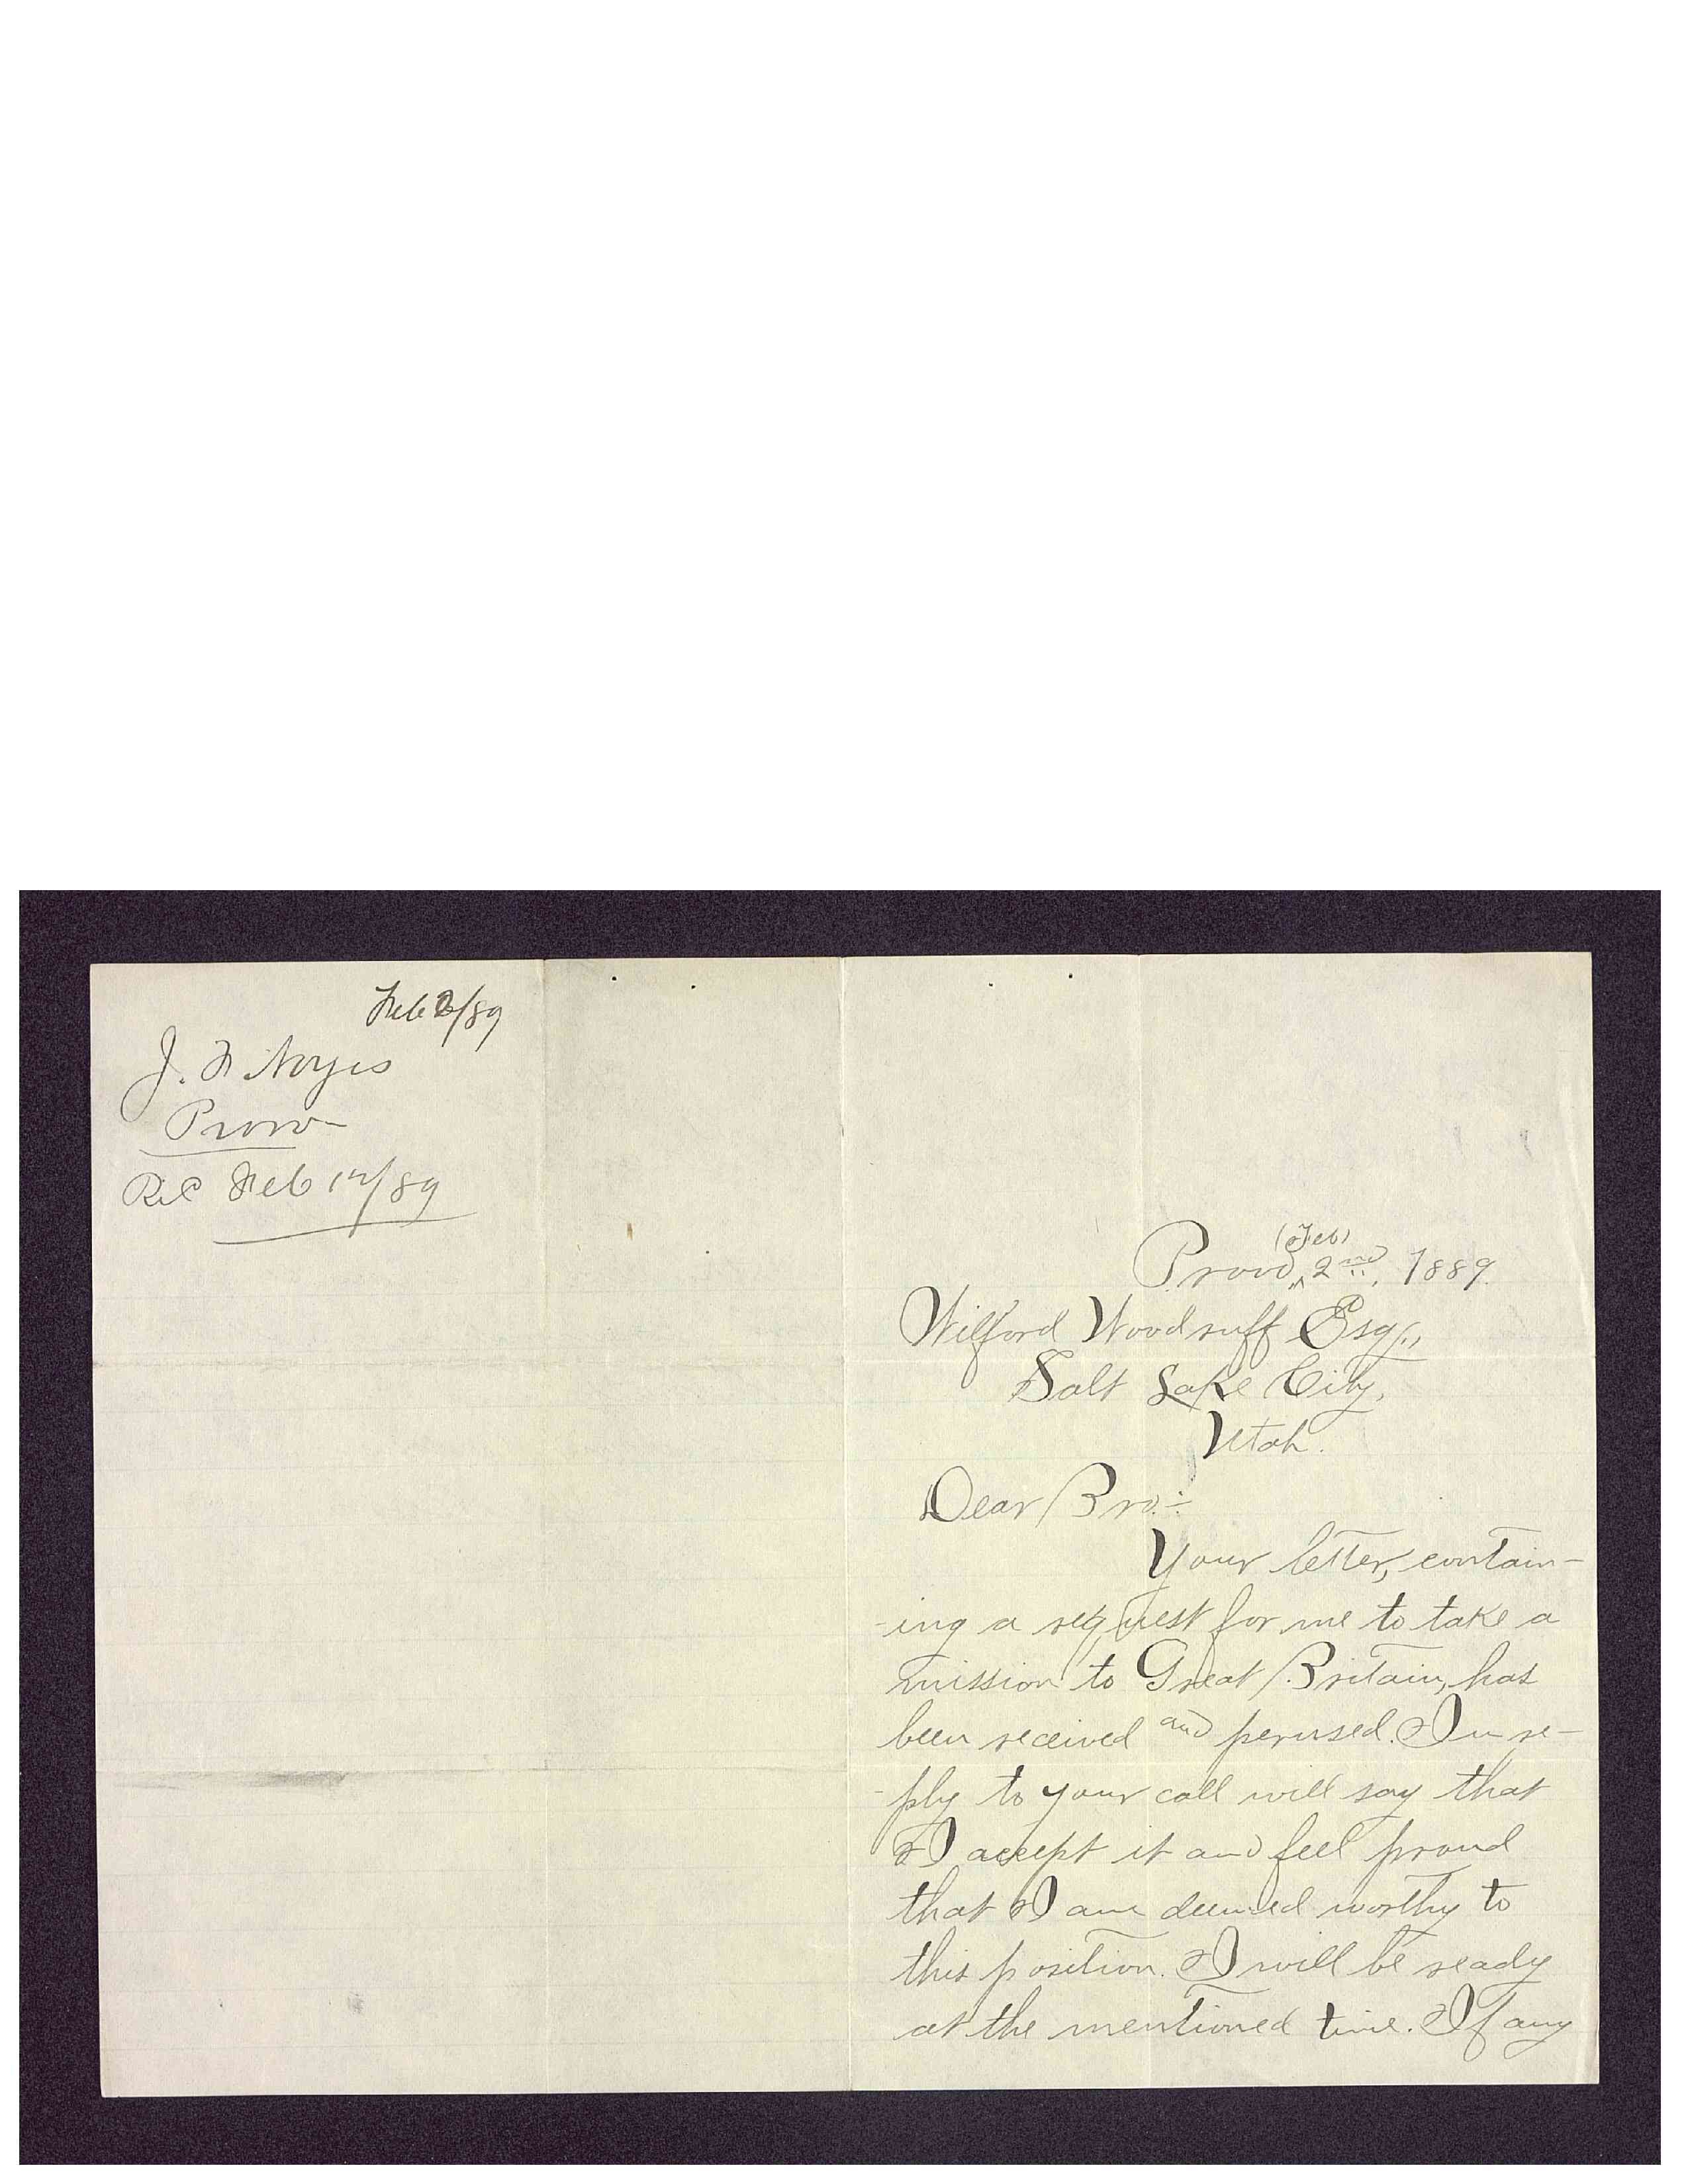 Feb 2/89
J. F. Noyes
Provo
Rec Feb 12/89
(Feb)
Provo, ^ 2nd, 1889.
Wilford Woodruff Esq.,
Salt Lake City,
Utah.
Dear Bro.:
Your letter, contain-
-ing a request for me to take a
mission to Great Britain, has
been received and perused. In re-
-ply to your call will say that
I accept it and feel proud
that I am deemed worthy to
this position. I will be ready
at the mentioned time. If any